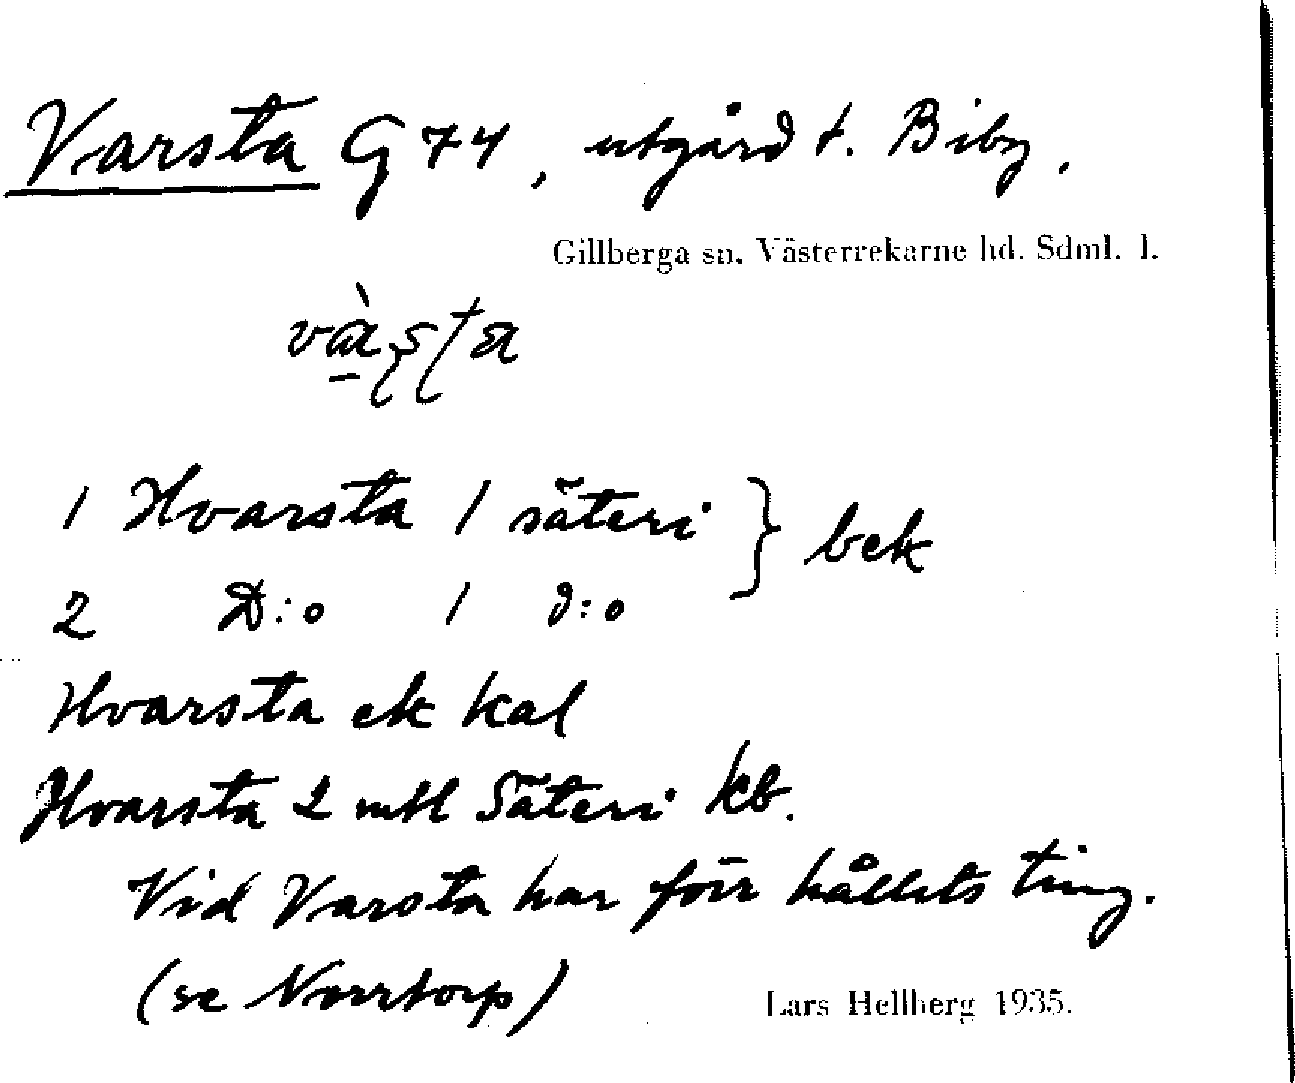 Varsta G 74, utgård t. Biby.
Gillberga sn. Västerrekarne hd. Sdml. l.
1 Hvarsta 1 säteri } bek
2 D:o 1 d:o
Hvarsta ek kal
Hvarsta 2 mtl Säteri kb.
Vid Varsta har förr hållits ting.
(se Norrtorp)
Lars Hellberg 1935.